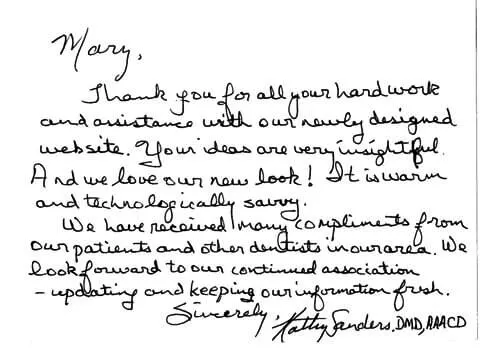 Mary,
Thank you for all your hard work
and assistance with our newly designed
website. Your ideas are very insightful.
And we love our new look! It is warm
and technologically savvy.
We have received many compliments from
our patients and other dentists in our area. We
look forward to our continued association
- updating and keeping our information fresh.
Sincerely,
Kathy Sanders, DMD, AAACD